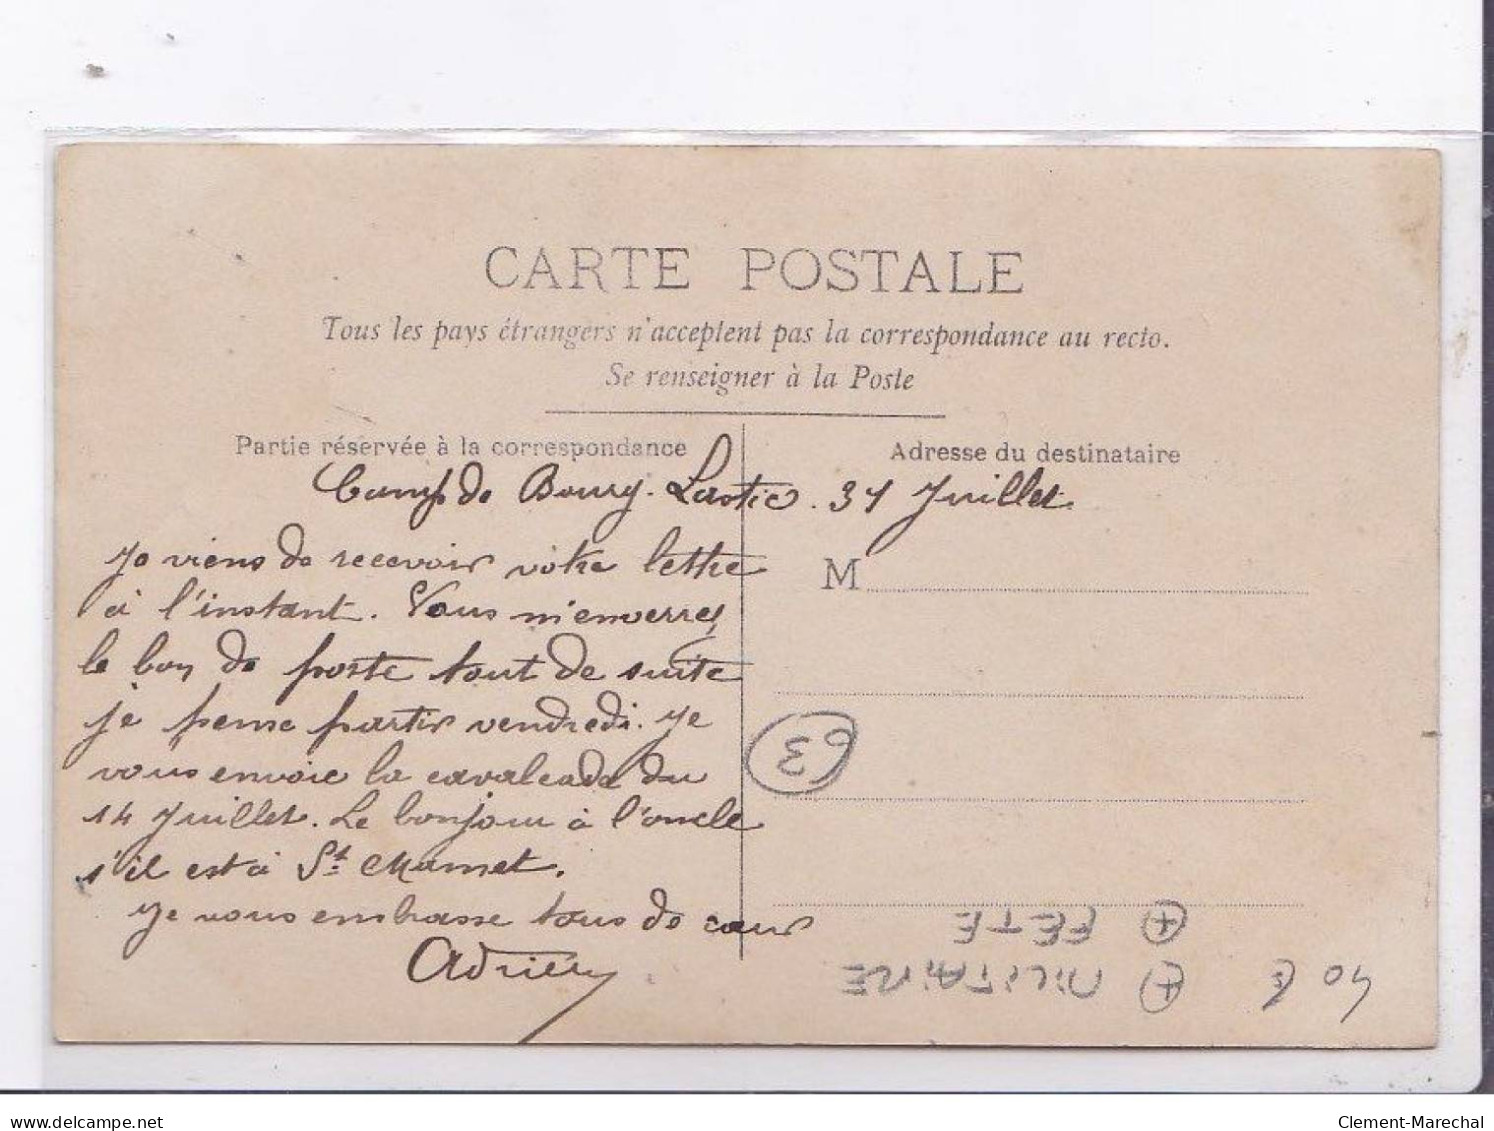 CARTE POSTALE
Tous les pays étrangers n'acceptent pas la correspondance au recto.
Se renseigner à la Poste
Partie réservée à la correspondance
Adresse du destinataire
Camp de Bourg-Lastic. 31 Juillet.
Je viens de recevoir votre lettre
à l'instant. Vous m'enverrez
le bon de poste tout de suite
je pense partir vendredi. Je
vous envoie la cavalcade du
14 Juillet. Le bonjour à l'oncle
s'il est à St. Mamet.
Je vous embrasse tous de cœur
Adrien
M
63
+ FÊTE
+ MILITAIRE
40 €
delcampe.net
Clement-Marechal